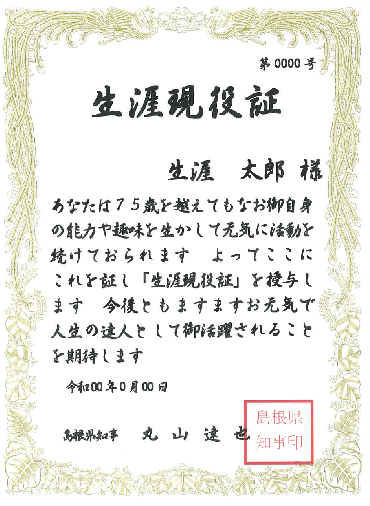 第0000号
生涯現役証
生涯 太郎 様
あなたは75歳を越えてもなお御自身
の能力や趣味を生かして元気に活動を
続けておられます よってここに
これを証し「生涯現役証」を授与し
ます 今後ともますますお元気で
人生の達人として御活躍されること
を期待します
令和00年0月00日
島根県知事 丸山達也
島根県
知事印